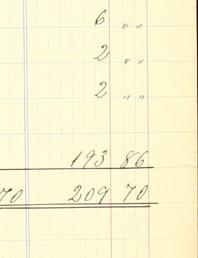 6 " "
2 " "
2 " "
193 86
70 209 70